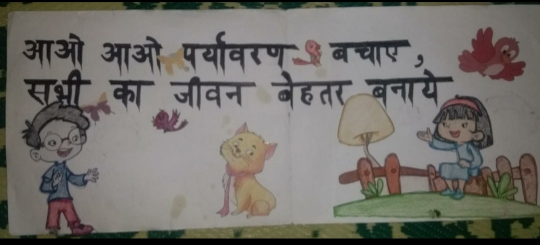 आओ आओ पर्यावरण बचाए ,
सभी का जीवन बेहतर बनाये